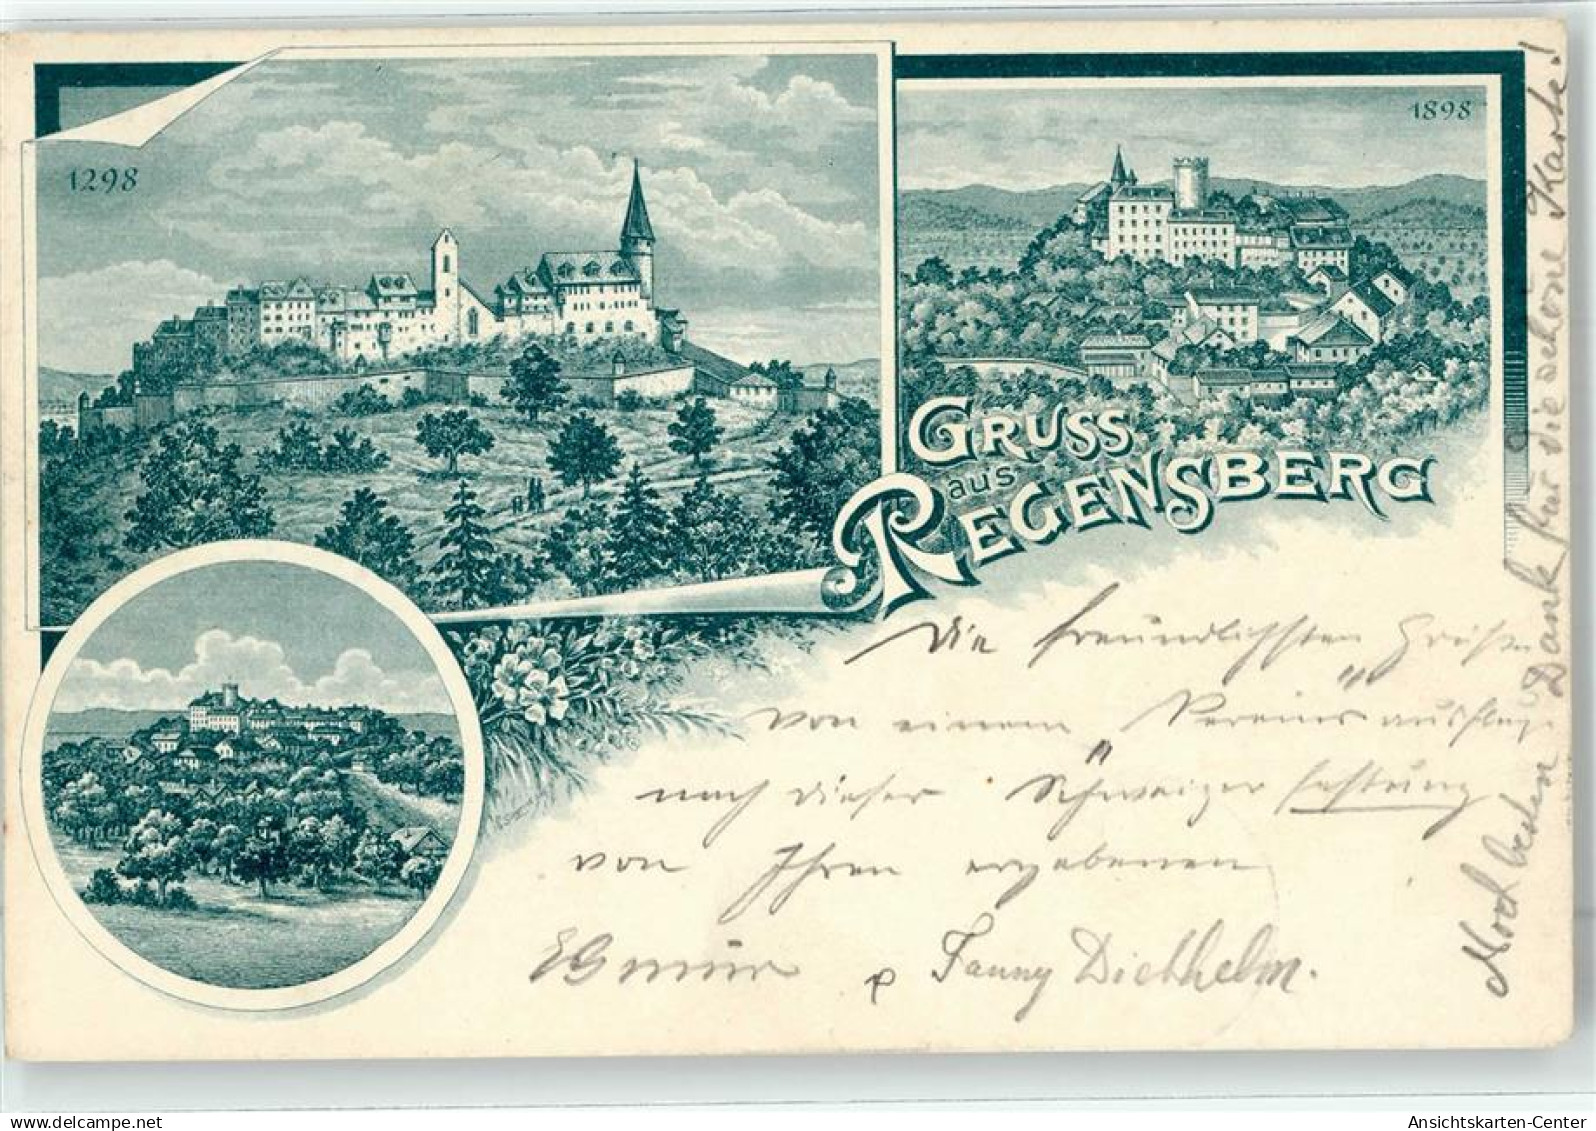 1298
1898
GRUSS
aus
REGENSBERG
Die freundlichsten Grüße
von einem Vereinsausfluge
nach dieser "Schweizer Festung"
von Ihren ergebenen
& Fanny Diethelm.
Noch besten Dank für die schöne Karte!
Ansichtskarten-Center